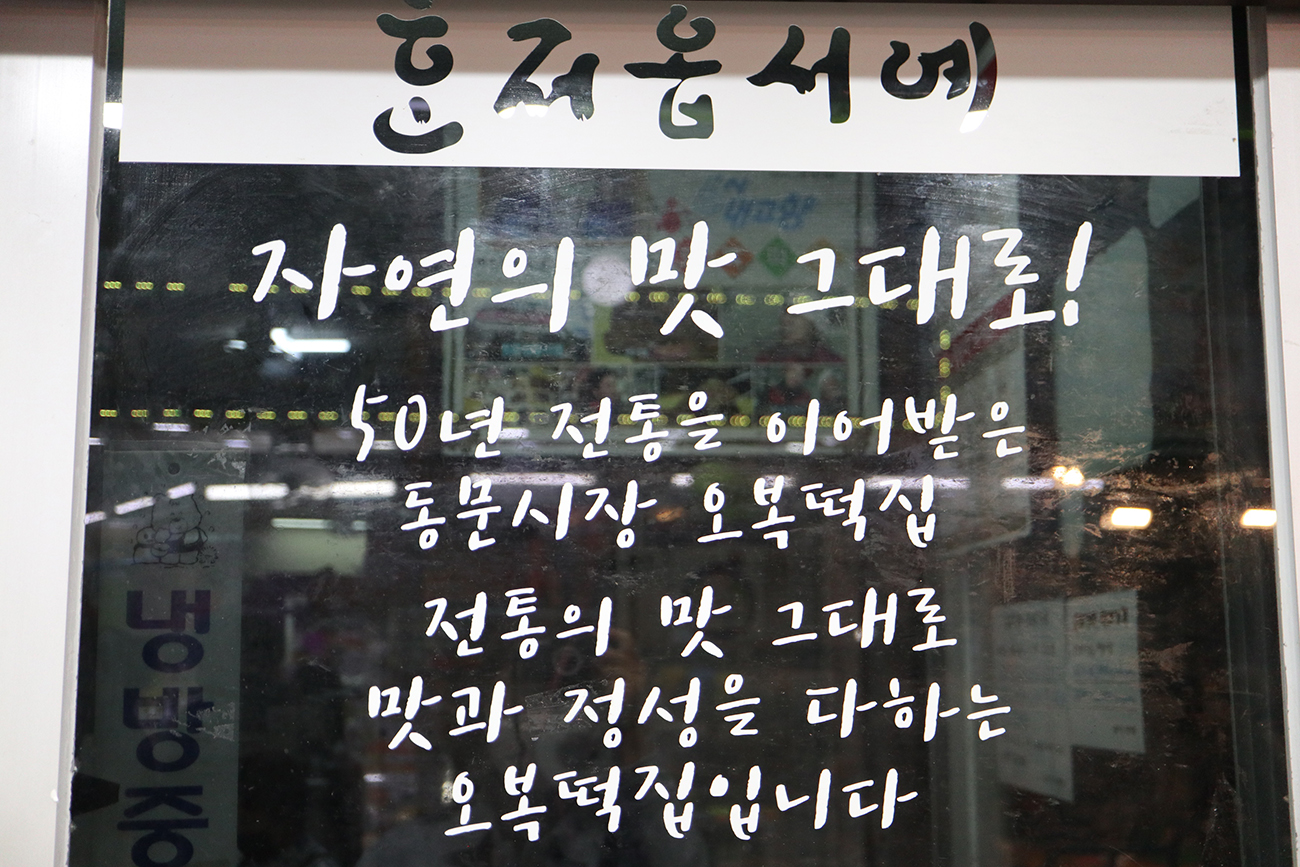 혼저옵서예
자연의 맛 그대로!
50년 전통을 이어받은
동문시장 오복떡집
전통의 맛 그대로
맛과 정성을 다하는
오복떡집입니다
냉방중
내고향